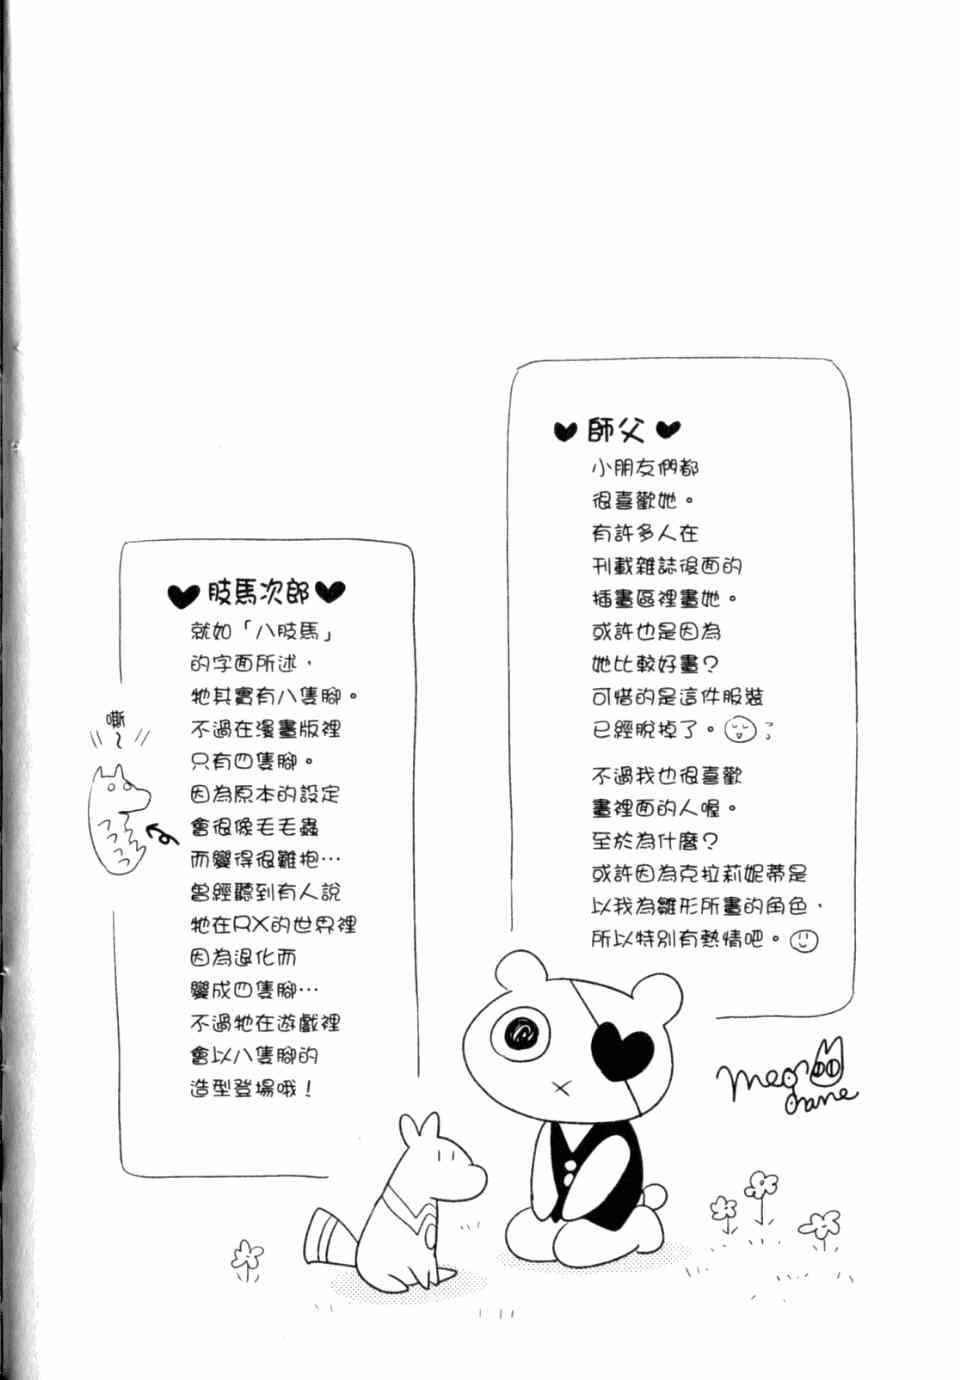 ♥師父♥
小朋友們都
很喜歡她。
有許多人在
刊載雜誌後面的
插畫區裡畫她。
或許也是因為
她比較好畫？
可惜的是這件服裝
已經脫掉了。
不過我也很喜歡
畫裡面的人喔。
至於為什麼？
或許因為克拉莉妮蒂是
以我為雛形所畫的角色，
所以特別有熱情吧。
♥肢馬次郎♥
就如「八肢馬」
的字面所述，
牠其實有八隻腳。
不過在漫畫版裡
只有四隻腳。
因為原本的設定
會很像毛毛蟲
而變得很難抱…
曾經聽到有人說
牠在RX的世界裡
因為退化而
變成四隻腳…
不過牠在遊戲裡
會以八隻腳的
造型登場哦！
嘶～